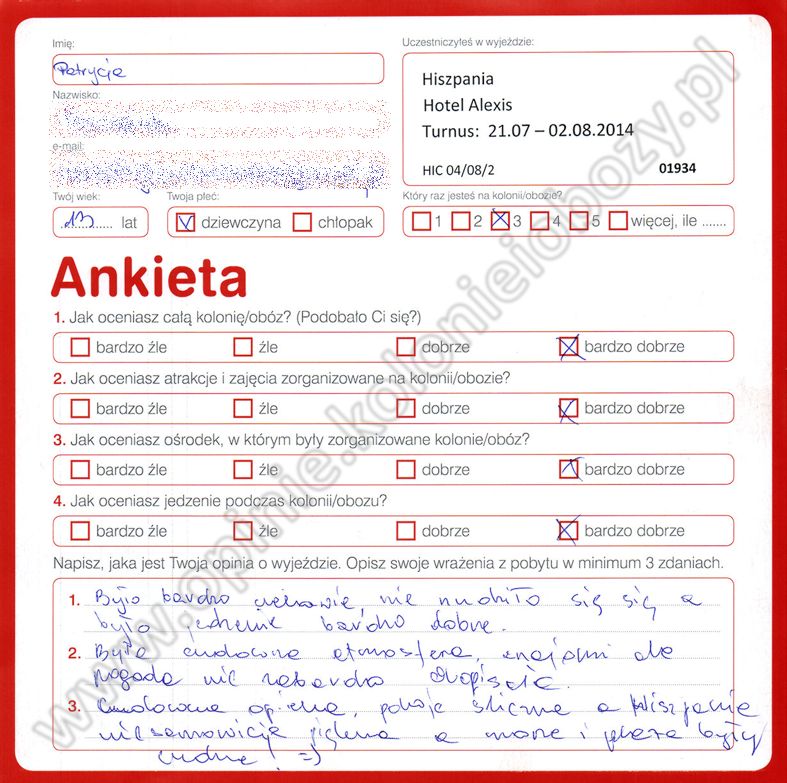 Imię:
Patrycja
Nazwisko:
e-mail:
Twój wiek:
13 lat
Twoja płeć:
dziewczyna chłopak
Uczestniczyłeś w wyjeździe:
Hiszpania
Hotel Alexis
Turnus: 21.07 – 02.08.2014
HIC 04/08/2 01934
Który raz jesteś na kolonii/obozie?
1 2 3 4 5 więcej, ile .......
Ankieta
1. Jak oceniasz całą kolonię/obóz? (Podobało Ci się?)
bardzo źle źle dobrze bardzo dobrze
2. Jak oceniasz atrakcje i zajęcia zorganizowane na kolonii/obozie?
bardzo źle źle dobrze bardzo dobrze
3. Jak oceniasz ośrodek, w którym były zorganizowane kolonie/obóz?
bardzo źle źle dobrze bardzo dobrze
4. Jak oceniasz jedzenie podczas kolonii/obozu?
bardzo źle źle dobrze bardzo dobrze
Napisz, jaka jest Twoja opinia o wyjeździe. Opisz swoje wrażenia z pobytu w minimum 3 zdaniach.
1. Było bardzo ciekawie, nie nudziło się się a
było jedzenie bardzo dobre.
2. Była cudowna atmosfera, znajomi ale
pogoda nie za bardzo dopisała.
3. Cudowna opieka, pokoje śliczne a Hiszpania
niesamowicie piękna a morze i plaża były
cudne! =)
www.opinie.kolonieiobozy.pl